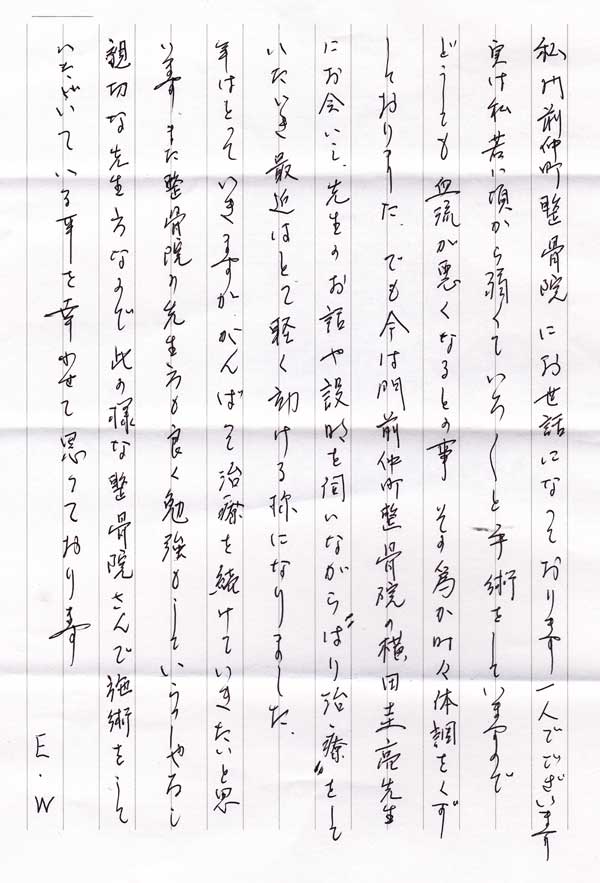 私門前仲町整骨院にお世話になっております一人でございます
実は私若い頃から弱くていろ〱と手術をしていますので
どうしても血流が悪くなるとの事 その為か時々体調をくず
しておりました。でも今は門前仲町整骨院の横田圭亮先生
にお会いし、先生のお話や設明を伺いながら〝はり治療〟をして
いたゞき最近はとて軽く動ける様になりました。
年はとっていきますが、がんばって治療を続けていきたいと思
います。また整骨院の先生方も良く勉強もしていらっしゃるし
親切な先生方なので此の様な整骨院さんで施術をして
いたゞいている事を幸わせて思っております
E.W